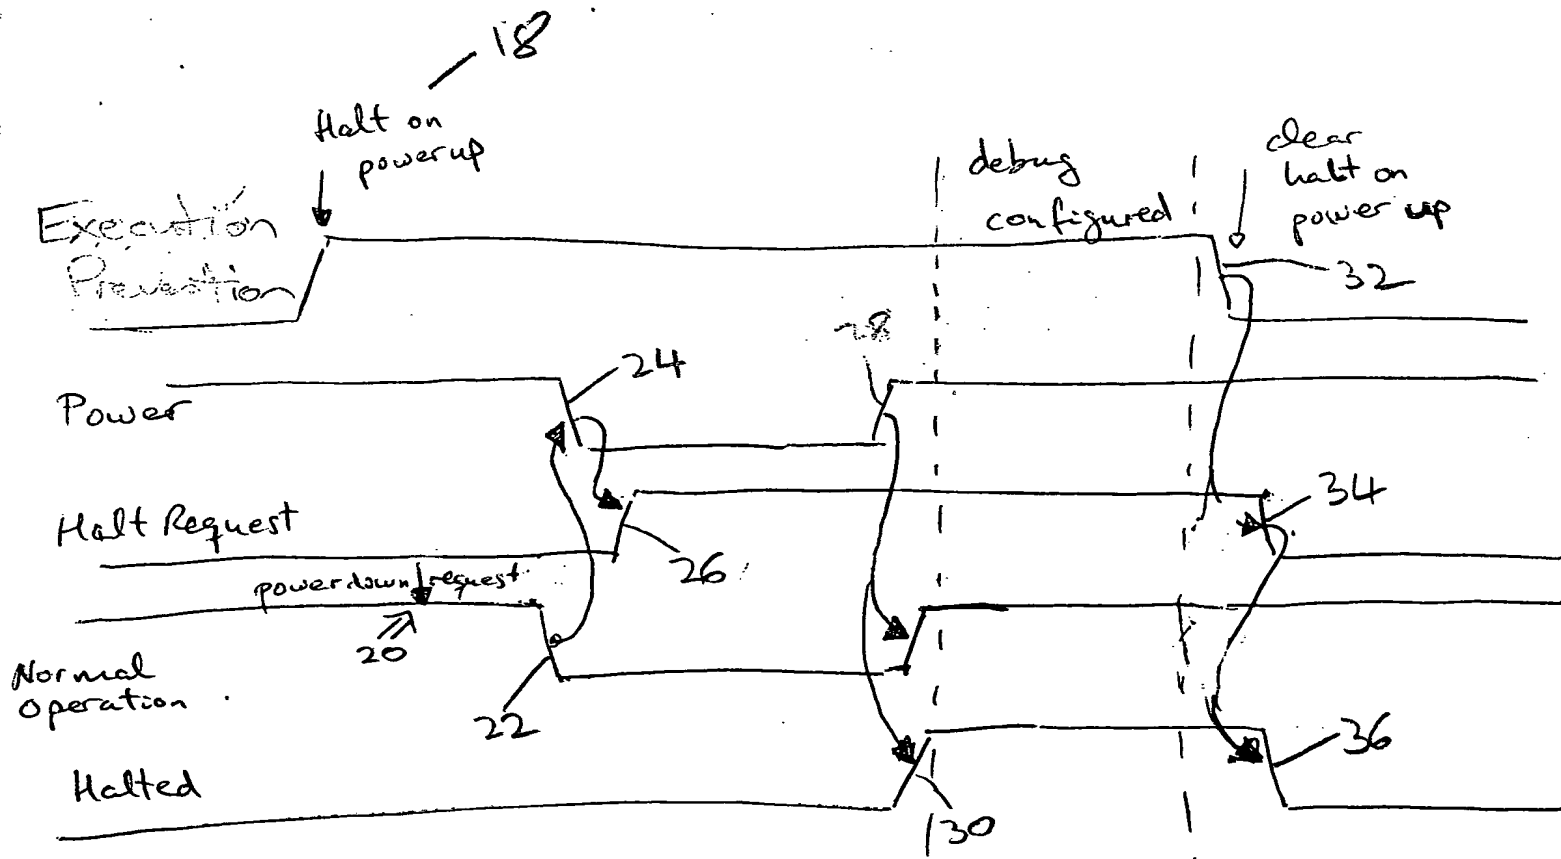 18
Halt on
power up
debug
configured
clear
halt on
power up
Execution
Prevention
32
28
24
Power
34
Halt Request
26
power down request
20
Normal
Operation
22
36
Halted
30